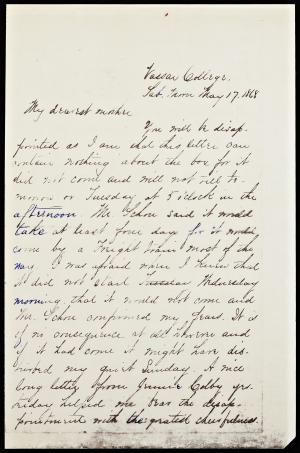 Vassar College.
Sat. morn May 17. 1868
My dearest mother
You will be disap-
pointed as I am that this letter can
contain nothing about the box for it
did not come and will not till to-
morrow or Tuesday at 5 o'clock in the
afternoon Mr. Schou said it would
take at least four days for it would
come by a Freight train most of the
way. I was afraid when I knew that
it did not start Wednesday
morning that it would not come and
Mr. Schou confirmed my fears. It is
of no consequence at all however and
if it had come it might have dis-
turbed my quiet Sunday. A nice
long letter from Jennie Colby yes-
terday helped me bear the disap-
pointment with the greatest cheerfulness.